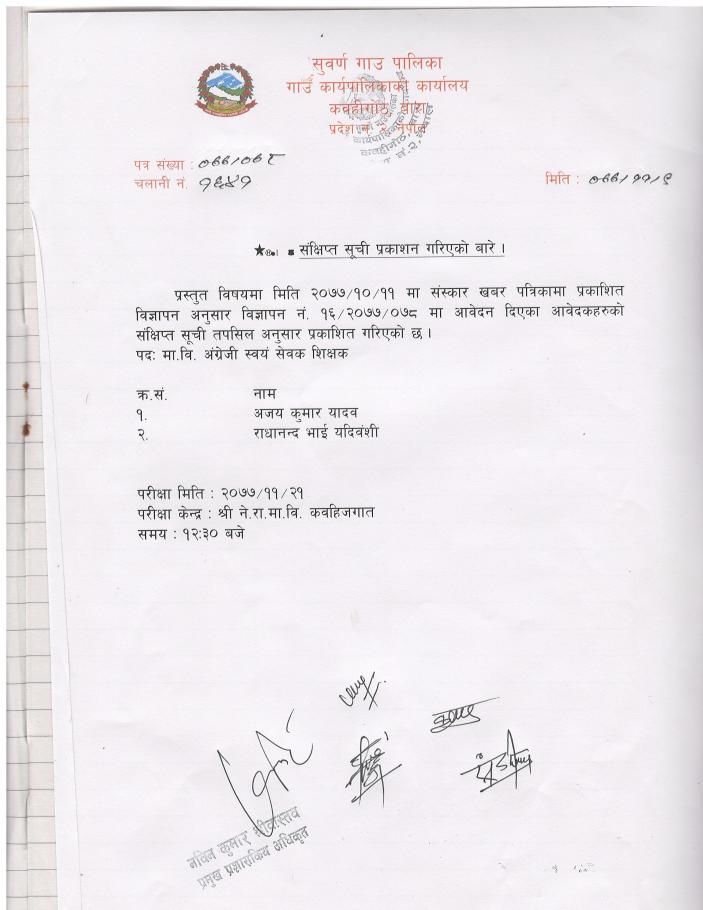 सुवर्ण गाउ पालिका
गाउँ कार्यपालिकाको कार्यालय
कवहीगोठ, बारा
प्रदेश नं. २, नेपाल
पत्र संख्या : ०७७/०७८
चलानी नं. १६४१
मिति : ०७७/११/९
संक्षिप्त सूची प्रकाशन गरिएको बारे ।
प्रस्तुत विषयमा मिति २०७७/१०/११ मा संस्कार खबर पत्रिकामा प्रकाशित
विज्ञापन अनुसार विज्ञापन नं. १६/२०७७/०७८ मा आवेदन दिएका आवेदकहरुको
संक्षिप्त सूची तपसिल अनुसार प्रकाशित गरिएको छ ।
पदः मा.वि. अंग्रेजी स्वयं सेवक शिक्षक
क्र.सं. नाम
१. अजय कुमार यादव
२. राधानन्द भाई यदिवंशी
परीक्षा मिति : २०७७/११/२१
परीक्षा केन्द्र : श्री ने.रा.मा.वि. कवहिजगात
समय : १२:३० बजे
नविन कुमार श्रीवास्तव
प्रमुख प्रशासकिय अधिकृत